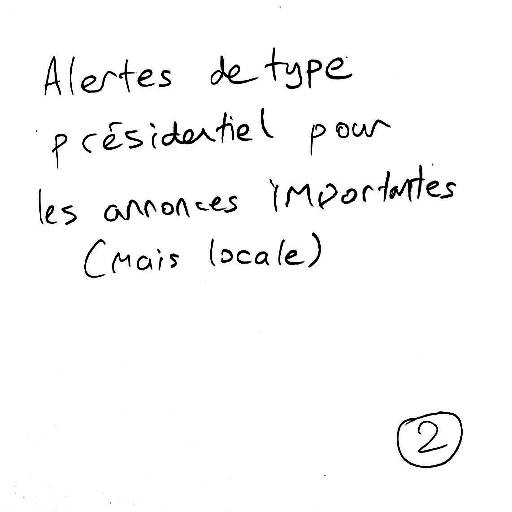 Alertes de type
présidentiel pour
les annonces importantes
(mais locale)
2